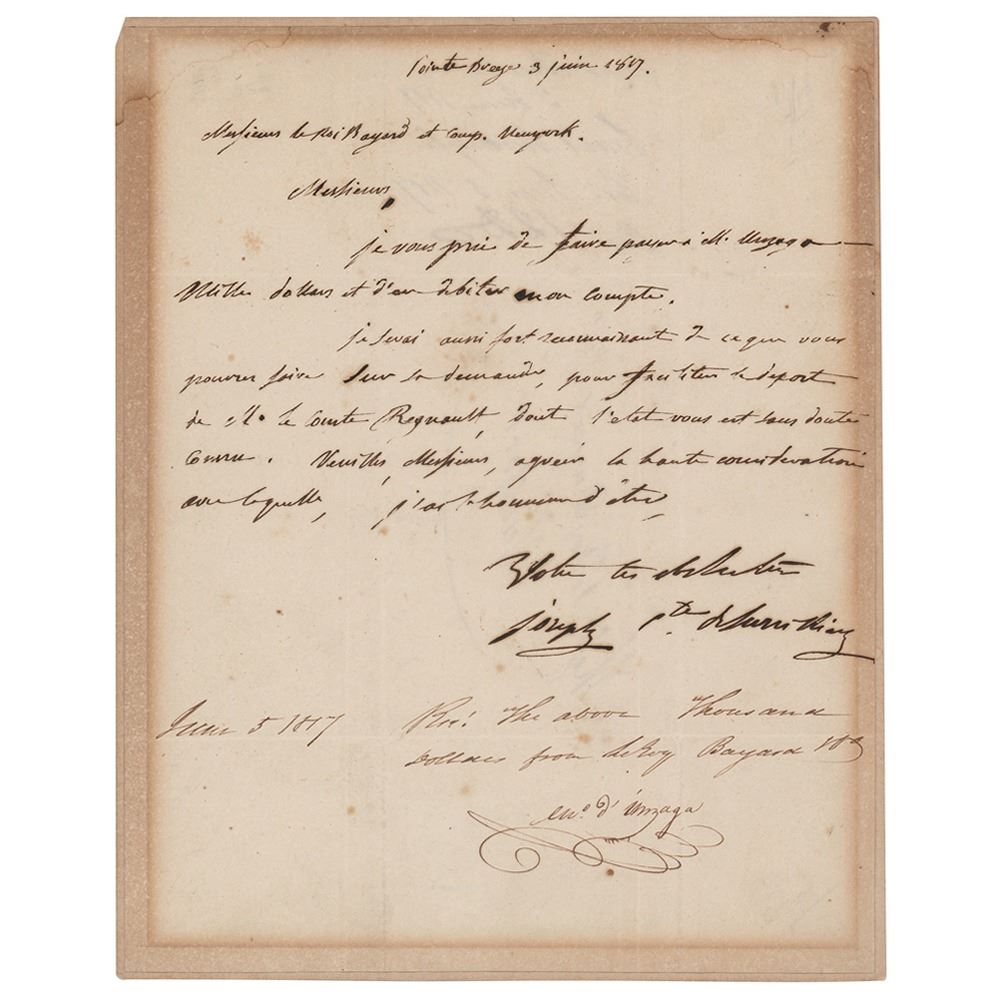 Pointe Breze 3 juin 1817.
Messieurs le Roi Bayard et Comp. Newyork.
Messieurs,
je vous prie de faire payer à M. Unzaga
Mille dollars et d'en debiter mon Compte.
je serai aussi fort reconnaissant de ce que vous
pourrez faire sur sa demande, pour faciliter le depart
de Mr le Comte Regnault, dont l'etat vous est sans doute
connu. Veuillez, Messieurs, agreer la haute consideration
avec laquelle, j'ai l'honneur d'être,
Votre tres obt Serviteur
Joseph Cte de Survilliers
June 5 1817
Recd. the above Thousand
Dollars from LeRoy Bayard &Co
d'Unzaga